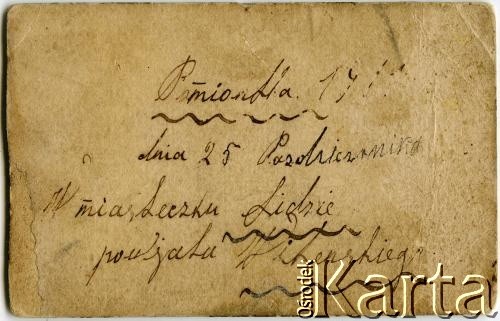 Pamiontka 19
dnia 25 Pazdziernika
W miasteczku Lidzie
powjatu Wilenskiego
Ośrodek Karta